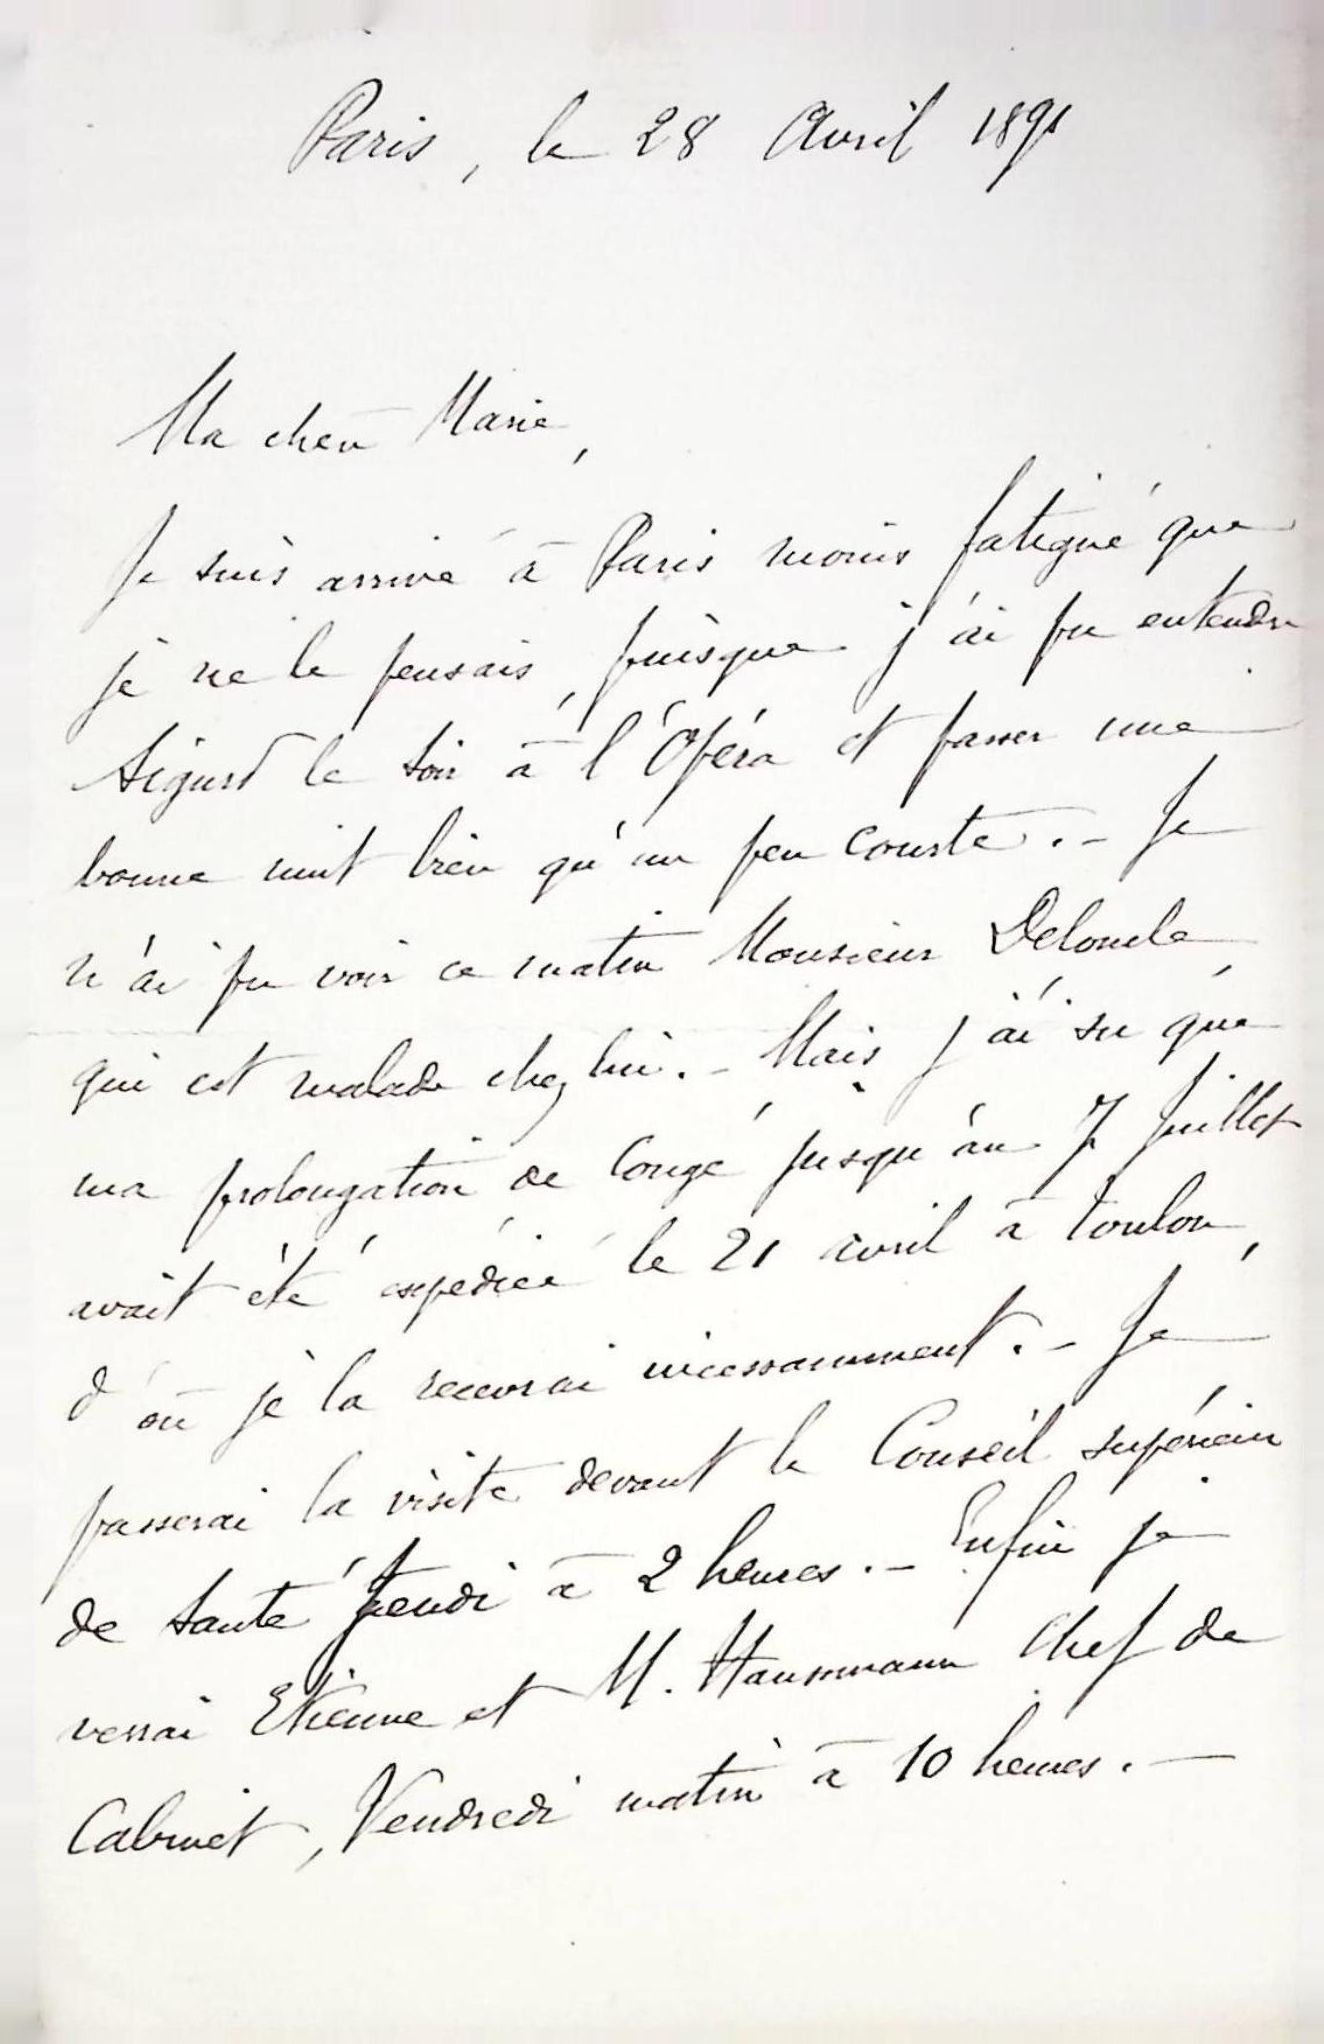 Paris, le 28 Avril 1891
Ma chère Marie,
Je suis arrivé à Paris moins fatigué que
je ne le pensais, puisque j'ai pu entendre
Sigurd le soir à l'Opéra et passer une
bonne nuit bien qu'un peu courte. - Je
n'ai pu voir ce matin Monsieur Deloncle,
qui est malade chez lui. - Mais j'ai su que
ma prolongation de Congé jusqu'au 7 Juillet
avait été expédiée le 21 avril à Toulon,
d'où je la recevrai incessamment. - Je
passerai la visite devant le Conseil supérieur
de Santé Jeudi à 2 heures. - Enfin je
verrai Etienne et M. Haussmann Chef de
Cabinet, Vendredi matin à 10 heures. -